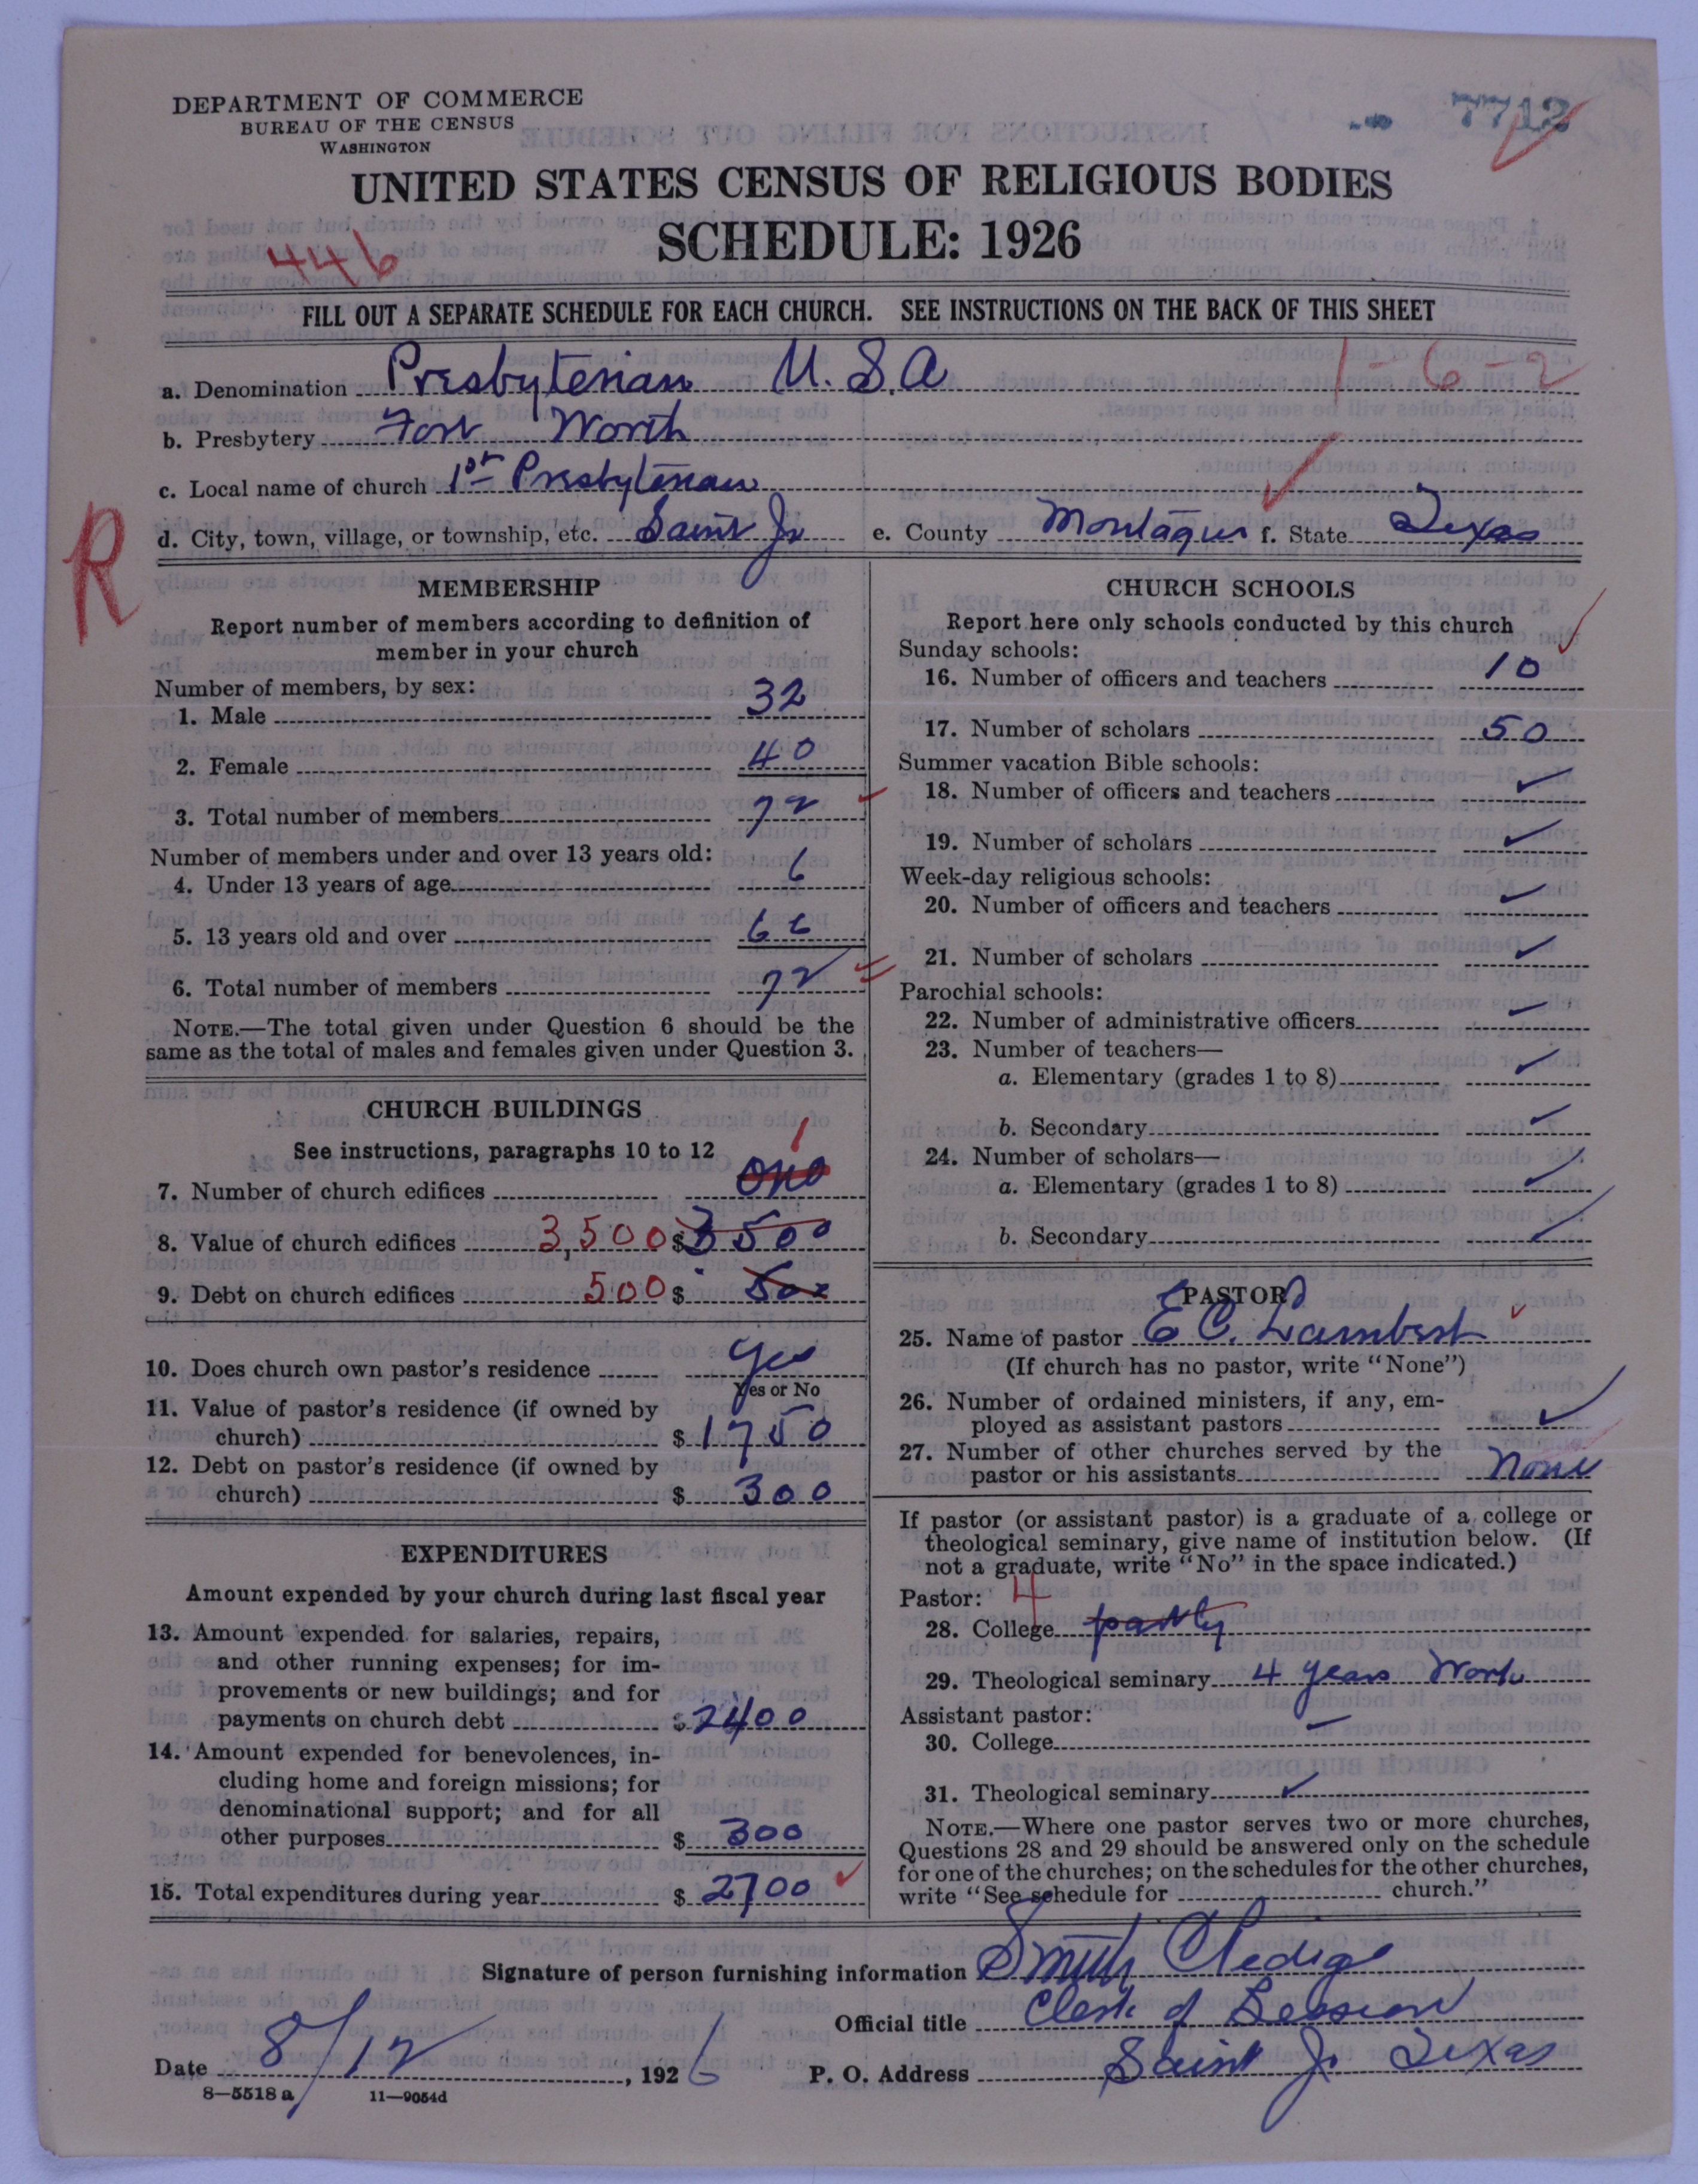 DEPARTMENT OF COMMERCE
BUREAU OF THE CENSUS
WASHINGTON
7712
UNITED STATES CENSUS OF RELIGIOUS BODIES
SCHEDULE: 1926
446
FILL OUT A SEPARATE SCHEDULE FOR EACH CHURCH. SEE INSTRUCTIONS ON THE BACK OF THIS SHEET
a. Denomination Presbyterian U.S.A 1-6-2
b. Presbytery Fort Worth
c. Local name of church 1st Presbyterian
d. City, town, village, or township, etc. Saint Jo e. County Montague f. State Texas
R
MEMBERSHIP
Report number of members according to definition of
member in your church
Number of members, by sex:
1. Male 32
2. Female 40
3. Total number of members 72
Number of members under and over 13 years old:
4. Under 13 years of age 6
5. 13 years old and over 66
6. Total number of members 72
NOTE.—The total given under Question 6 should be the
same as the total of males and females given under Question 3.
CHURCH BUILDINGS
See instructions, paragraphs 10 to 12
1
7. Number of church edifices one
8. Value of church edifices 3,500 $ 3500
9. Debt on church edifices 500 $ 500
10. Does church own pastor's residence yes
Yes or No
11. Value of pastor's residence (if owned by
church) $ 1750
12. Debt on pastor's residence (if owned by
church) $ 300
EXPENDITURES
Amount expended by your church during last fiscal year
13. Amount expended for salaries, repairs,
and other running expenses; for im-
provements or new buildings; and for
payments on church debt $ 2400
14. Amount expended for benevolences, in-
cluding home and foreign missions; for
denominational support; and for all
other purposes $ 300
15. Total expenditures during year $ 2700
CHURCH SCHOOLS
Report here only schools conducted by this church
Sunday schools:
16. Number of officers and teachers 10
17. Number of scholars 50
Summer vacation Bible schools:
18. Number of officers and teachers
19. Number of scholars
Week-day religious schools:
20. Number of officers and teachers
21. Number of scholars
Parochial schools:
22. Number of administrative officers
23. Number of teachers—
a. Elementary (grades 1 to 8)
b. Secondary
24. Number of scholars—
a. Elementary (grades 1 to 8)
b. Secondary
PASTOR
25. Name of pastor E C. Lambert
(If church has no pastor, write "None")
26. Number of ordained ministers, if any, em-
ployed as assistant pastors
27. Number of other churches served by the
pastor or his assistants None
If pastor (or assistant pastor) is a graduate of a college or
theological seminary, give name of institution below. (If
not a graduate, write "No" in the space indicated.)
Pastor: 4
28. College partly
29. Theological seminary 4 years Work
Assistant pastor:
30. College
31. Theological seminary
NOTE.—Where one pastor serves two or more churches,
Questions 28 and 29 should be answered only on the schedule
for one of the churches; on the schedules for the other churches,
write "See schedule for church."
Signature of person furnishing information Smith
Official title Clerk of Session
Date 8/12, 1926 P. O. Address Saint Jo Texas
8—5518 a 11—9054d